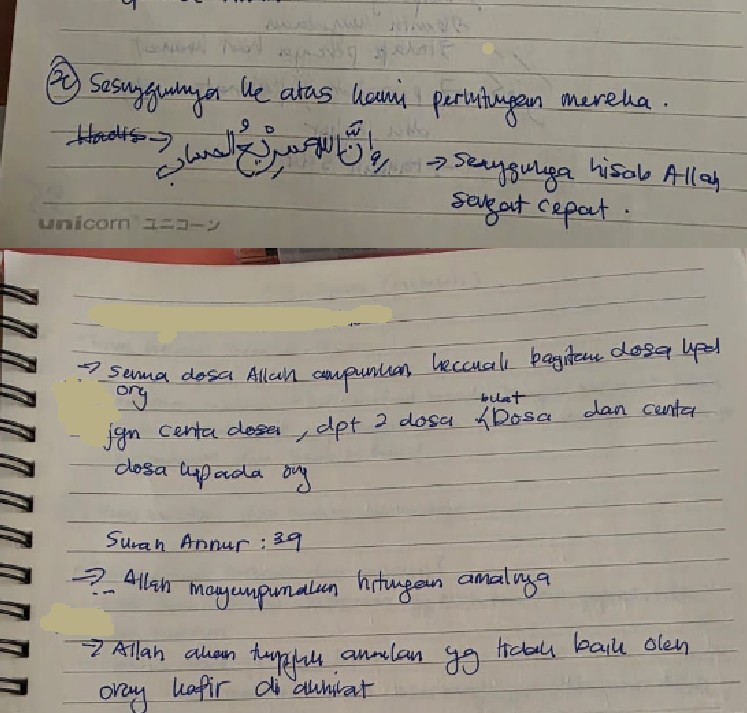 x Sesungguhnya ke atas kami perhitungan mereka.
Hadis → وَإِنَّ اللهَ سَرِيْعُ الحساب → Sesungguhnya hisab Allah
sangat cepat.
unicorn ユニコーン
→ Semua dosa Allah ampunkan kecuali bagitau dosa kpd
org
jgn cerita dosa, dpt 2 dosa < buat Dosa dan cerita
dosa kepada org
Surah Annur : 39
→ Allah menyempurnakan hitungan amalnya
→ Allah akan tunjuk amalan yg tidak baik oleh
orang kafir di akhirat